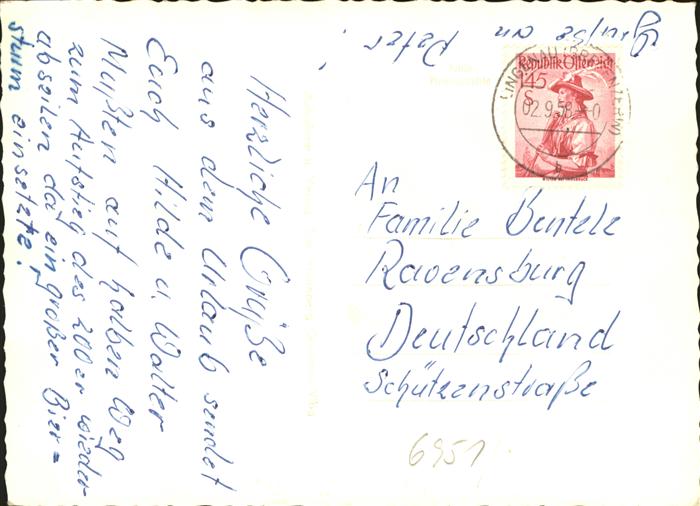 Herzliche Grüße
aus dem Urlaub sendet
Euch Hilde u. Walter
Mußten auf halben Weg
zum Aufstieg des 200er wieder
abseilen da ein großer Bier=
sturm einsetzte!
Grüße an Peter
Republik Österreich
1.45
S
LINGENAU (BREGENZERW)
02.9.58
b
An
Familie Bentele
Ravensburg
Deutschland
Schützenstraße
6951